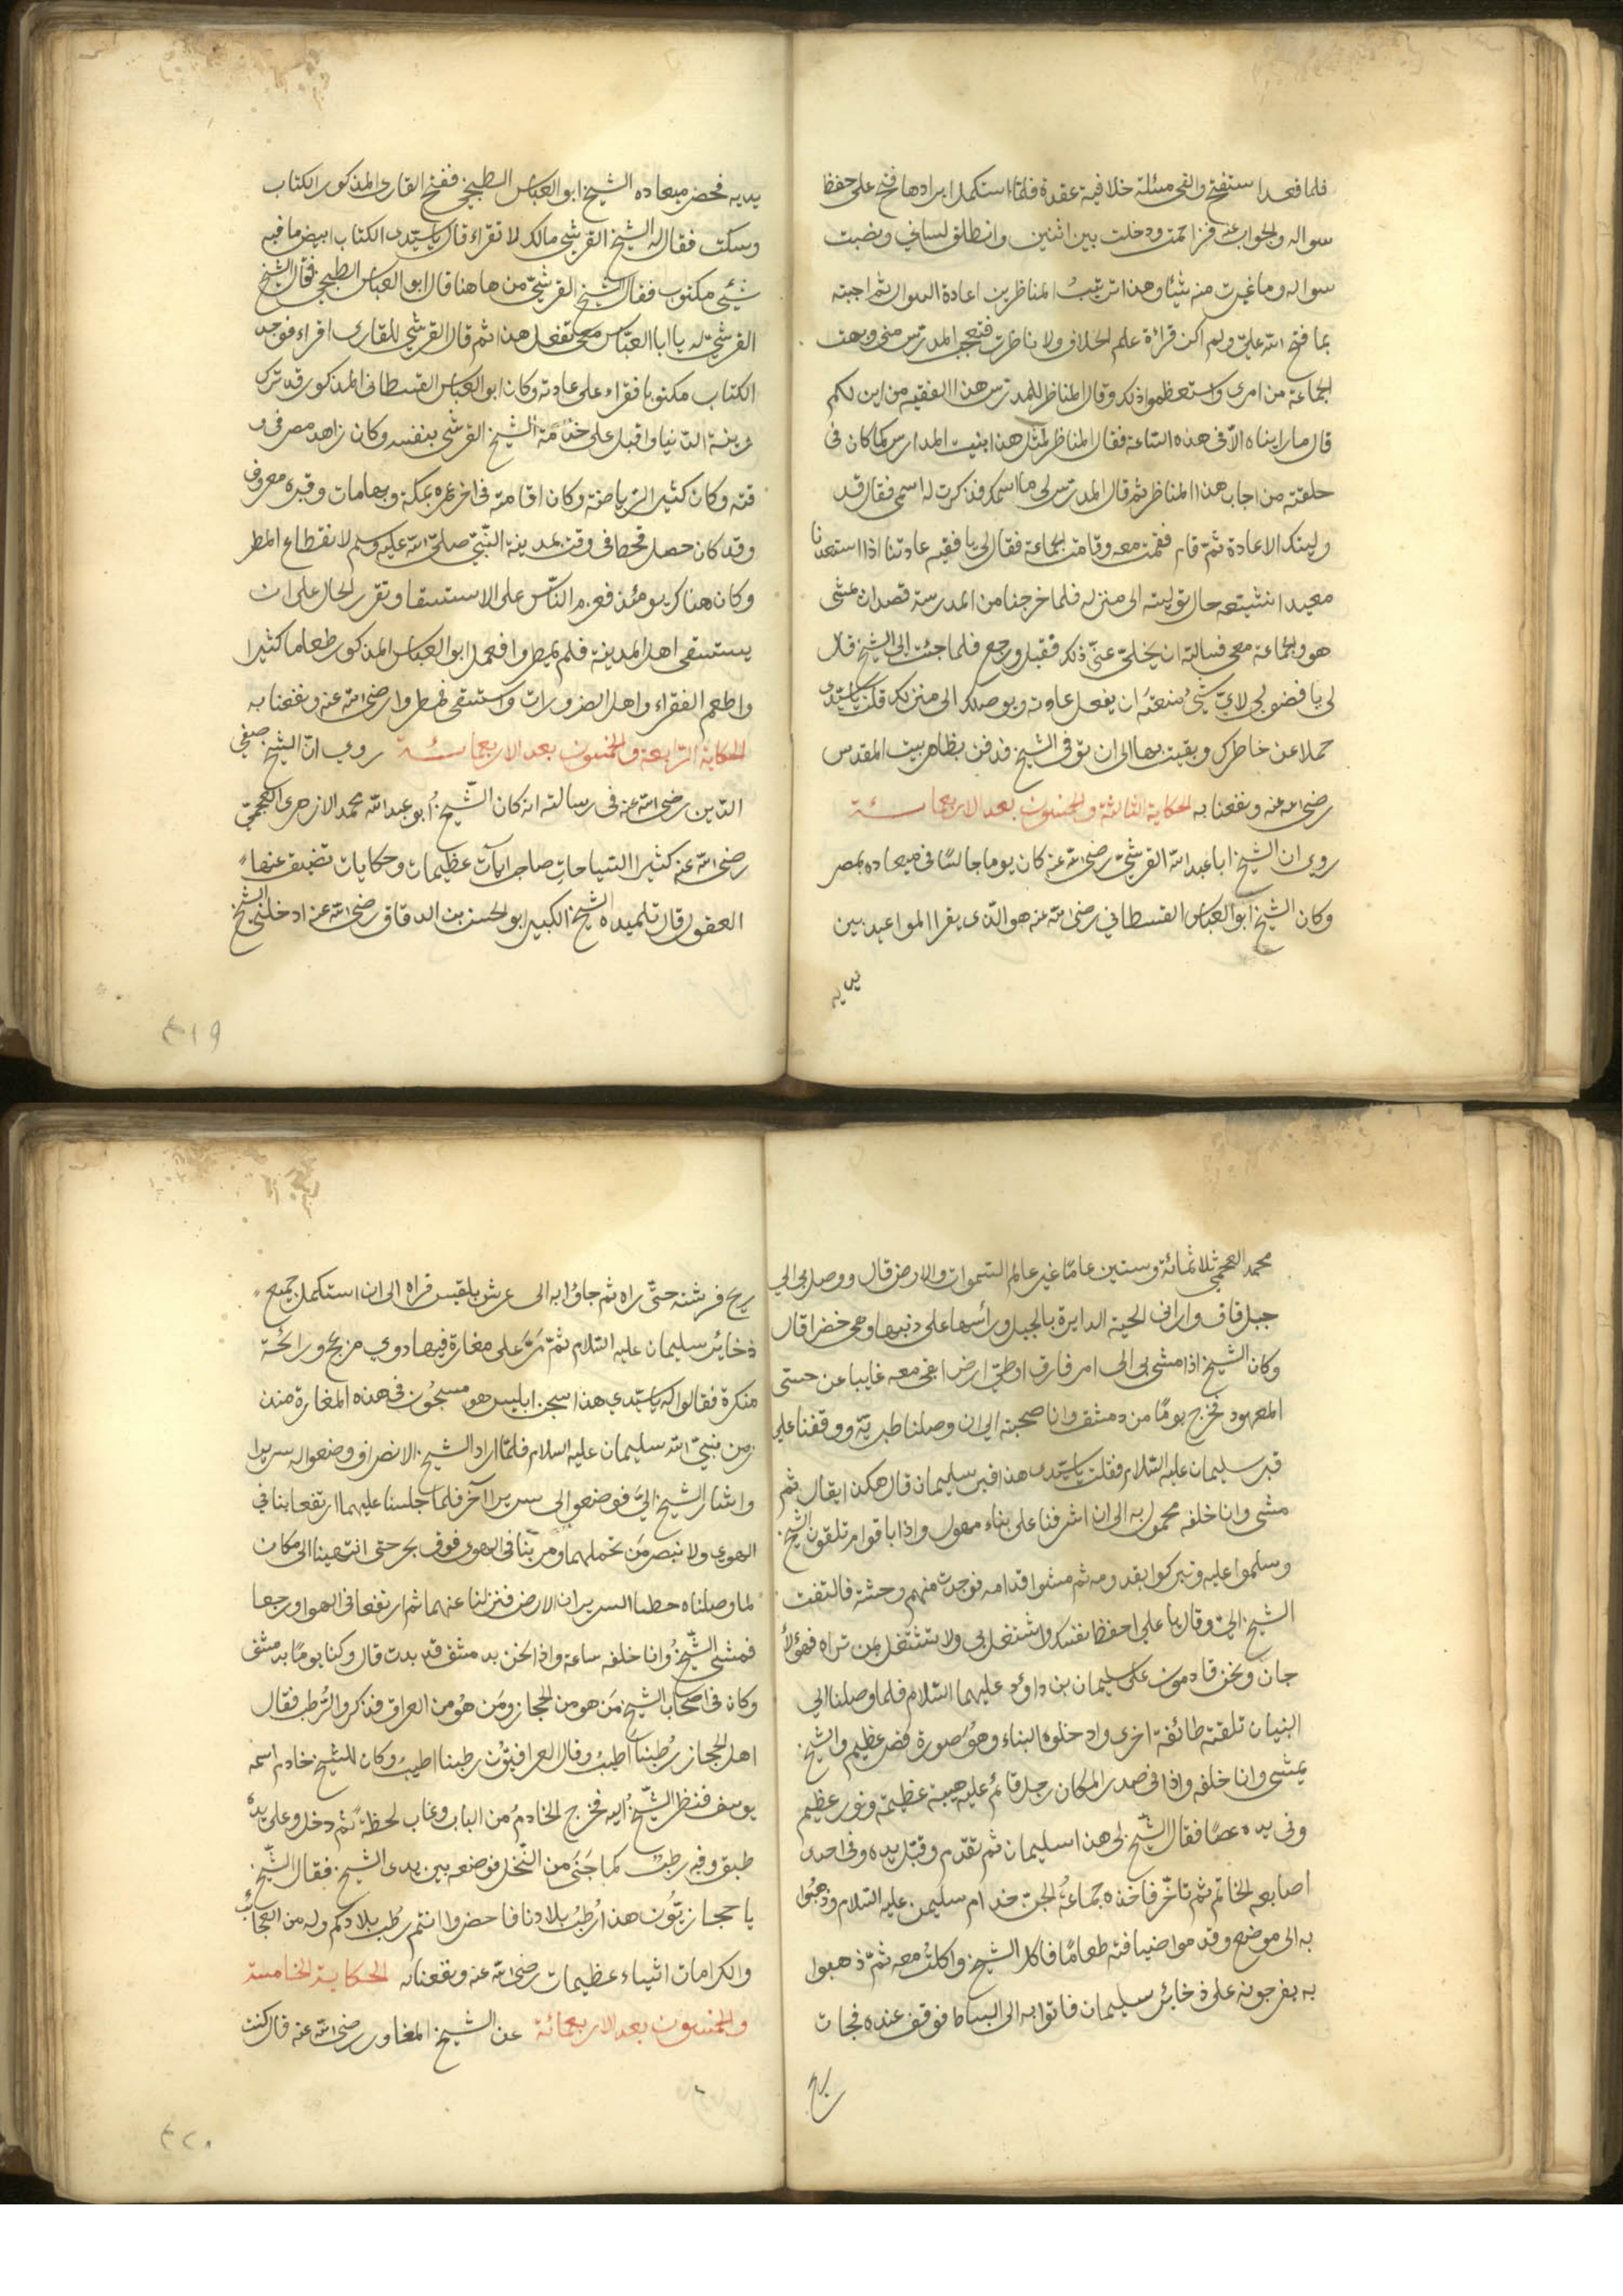 فلما قعد استفتح والقى مسئلة خلافية عقدة فلما استكمل ايرادها فتح على حفظ
سواله والجواب عنه فزاحمت ودخلت بين اثنين وانطلق لساني ونصبت
سواله وما غيرت منه شيئا وهذا ترتيب المناظرين اعادة السوال ثم اجبته
بما فتح الله علي ولم اكن قرأة علم الخلاف ولا ناظرت فتعجب المدرس مني وبهت
الجماعة من امرى واستعظموا ذلك وقال المناظر للمدرس هذا الفقيه من اين لكم
قال ما رايناه الا فى هذه الساعة فقال المناظر لمثل هذا ابنيت المدارس كما كان فى
حلقته من اجاب هذا المناظر ثم قال المدرس لي ما اسمك فذكرت له اسمى فقال قد
وليتك الاعادة ثم قام فقمت معه وقامت الجماعة فقال لي يا فقيه عادتنا اذا استعدنا
معيدا نشيعه حال توليته الى منزله فلما خرجنا من المدرسة قصد ان يمشى
هو والجماعة معى فسالته ان يخلى عنى ذلك فقبل ورجع فلما جئت الى الشيخ قال
لى يا فضولي لاي شئ منعته ان يفعل عادته ويوصلك الى منزلك قلت يا سيدى
حملا عن خاطرك وبقيت بها الى ان توفى الشيخ فدفن بظاهر بيت المقدس
رضى الله عنه ونفعنا به الحكاية الثالثة والخمسون بعد الاربعمائة
روى ان الشيخ ابا عبد الله القرشى رضى الله عنه كان يوما جالسا فى ميعاده بمصر
وكان الشيخ ابو العباس القسطانى رضى الله عنه هو الذى يقرا المواعيد بين
يديه
يديه فحضر ميعاده الشيخ ابو العباس الطبيخي ففتح القارى المذكور الكتاب
وسكت فقال له الشيخ القرشى مالك لا تقراء قال يا سيدى الكتاب ابيض ما فيه
شئ مكتوب فقال الشيخ القرشى من ها هنا قال ابو العباس الطبيخي فقال الشيخ
القرشى له يا ابا العباس معى تفعل هذا ثم قال القرشى للقارى اقراء فوجد
الكتاب مكتوبا فقراء على عادته وكان ابو العباس القسطانى المذكور قد ترك
زينة الدنيا واقبل على خدمة الشيخ القرشى بنفسه وكان زاهد مصر فى و
قته وكان كثير الرياضة وكان اقامته فى اخر عمره بمكة وبها مات وقبره معروف
وقد كان حصل قحط فى وقت بمدينة النبى صلى الله عليه وسلم لانقطاع المطر
وكان هناك يومئذ فعزم الناس على الاستسقا وتقرر الحال على ان
يستسقى اهل المدينة فلم يمطروا فعمل ابو العباس المذكور طعاما كثيرا
واطعم الفقراء واهل الضرورات واستسقى فمطروا رضى الله عنه ونفعنا به
الحكاية الرابعة والخمسون بعد الاربعمائة روى ان الشيخ صفى
الدين رضى الله عنه فى رسالته انه كان الشيخ ابو عبد الله محمد الازهرى العجمى
رضى الله عنه كثير السياحات صاحب ايات عظيمات وحكايات تضيق عنها
العقول قال تلميذه الشيخ الكبير ابو الحسن بن الدقاق رضى الله عنه ادخلنى الشيخ
٤١٩
محمد العجمى ثلاثمائة وستين عاما غير عالم السموات والارض قال ووصل بى الى
جبل قاف وارانى الحية الدايرة بالجبل ورأسها على ذنبها وهى خضرا قال
وكان الشيخ اذا مشى بى الى امر فارق او طى ارض ابقى معه غايبا عن حسى
المعهود فخرج يوما من دمشق وانا صحبته الى ان وصلنا طبرية ووقفنا على
قبر سليمان عليه السلام فقلت يا سيدى هذا قبر سليمان قال هكذا يقال ثم
مشى وانا خلفه محمول به الى ان اشرفنا على بناء مهول واذا باقوام تلقون الشيخ
وسلموا عليه وتبركوا بقدومه ثم مشوا قدامه فوجدت منهم وحشة فالتفت
الشيخ الى وقال يا على احفظ نفسك واشتغل بى ولا تشتغل بمن تراه فهؤلأ
جان ونحن قادمون على سليمان بن داؤد عليهما السلام فلما وصلنا الى
البنيان تلقته طائفة اخرى وادخلوه البناء وهو صورة قصر عظيم والشيخ
يمشى وانا خلفه واذا فى صدر المكان رجل قائم عليه هيبة عظيمة ونور عظيم
وفى يده عصا فقال الشيخ لى هذا سليمان ثم تقدم وقبل يده وفى احدى
اصابعه الخاتم ثم تاخر فاخذه جماعة الجن خدام سليمن عليه السلام وذهبوا
به الى موضع وقدموا ضيافته طعاما فاكل الشيخ واكلت معه ثم ذهبوا
به يفرجونه على ذخائر سليمان فاتوا به الى البساط فوقف عنده فجات
ريح
ريح فرشته حتى راه ثم جاؤا به الى عرش بلقيس فراه الى ان استكمل جميع
ذخاير سليمان عليه السلام ثم مر على مغارة فيها دوى مزعج ورائحة
منكرة فقالوا له يا سيدي هذا سجن ابليس هو مسجون فى هذه المغارة منذ
زمن نبى الله سليمان عليه السلام فلما اراد الشيخ الانصراف وضعوا له سريرا
واشار الشيخ الى فوضعوا لى سريرا آخر فلما جلسنا عليهما ارتفعا بنا فى
الهوى ولا نبصر من تحملهما ومر بنا فى الهوى فوق بحر حتى انتهينا الى مكان
لما وصلناه حطا السريران الارض فنزلنا عنهما ثم ارتفعا فى الهوا ورجعا
فمشى الشيخ وانا خلفه ساعة واذا نحن بدمشق قد بدت قال وكنا يوما بدمشق
وكان فى اصحاب الشيخ من هو من الحجاز ومن هو من العراق فذكروا الرطب فقال
اهل الحجاز رطبنا اطيب وقال العراقيون رطبنا اطيب وكان للشيخ خادم اسمه
يوسف فنظر الشيخ اليه فخرج الخادم من الباب وغاب لحظة ثم دخل وعلى يده
طبق وفيه رطب كما جنى من النخل فوضعه بين يدى الشيخ فقال الشيخ
يا حجازيون هذا رطب بلادنا فاحضروا انتم رطب بلادكم وله من العجائب
والكرامات اشياء عظيمات رضى الله عنه ونفعنا به الحكاية الخامسة
والخمسون بعد الاربعمائة عن الشيخ المغاور رضى الله عنه قال كنت
٤٢٠